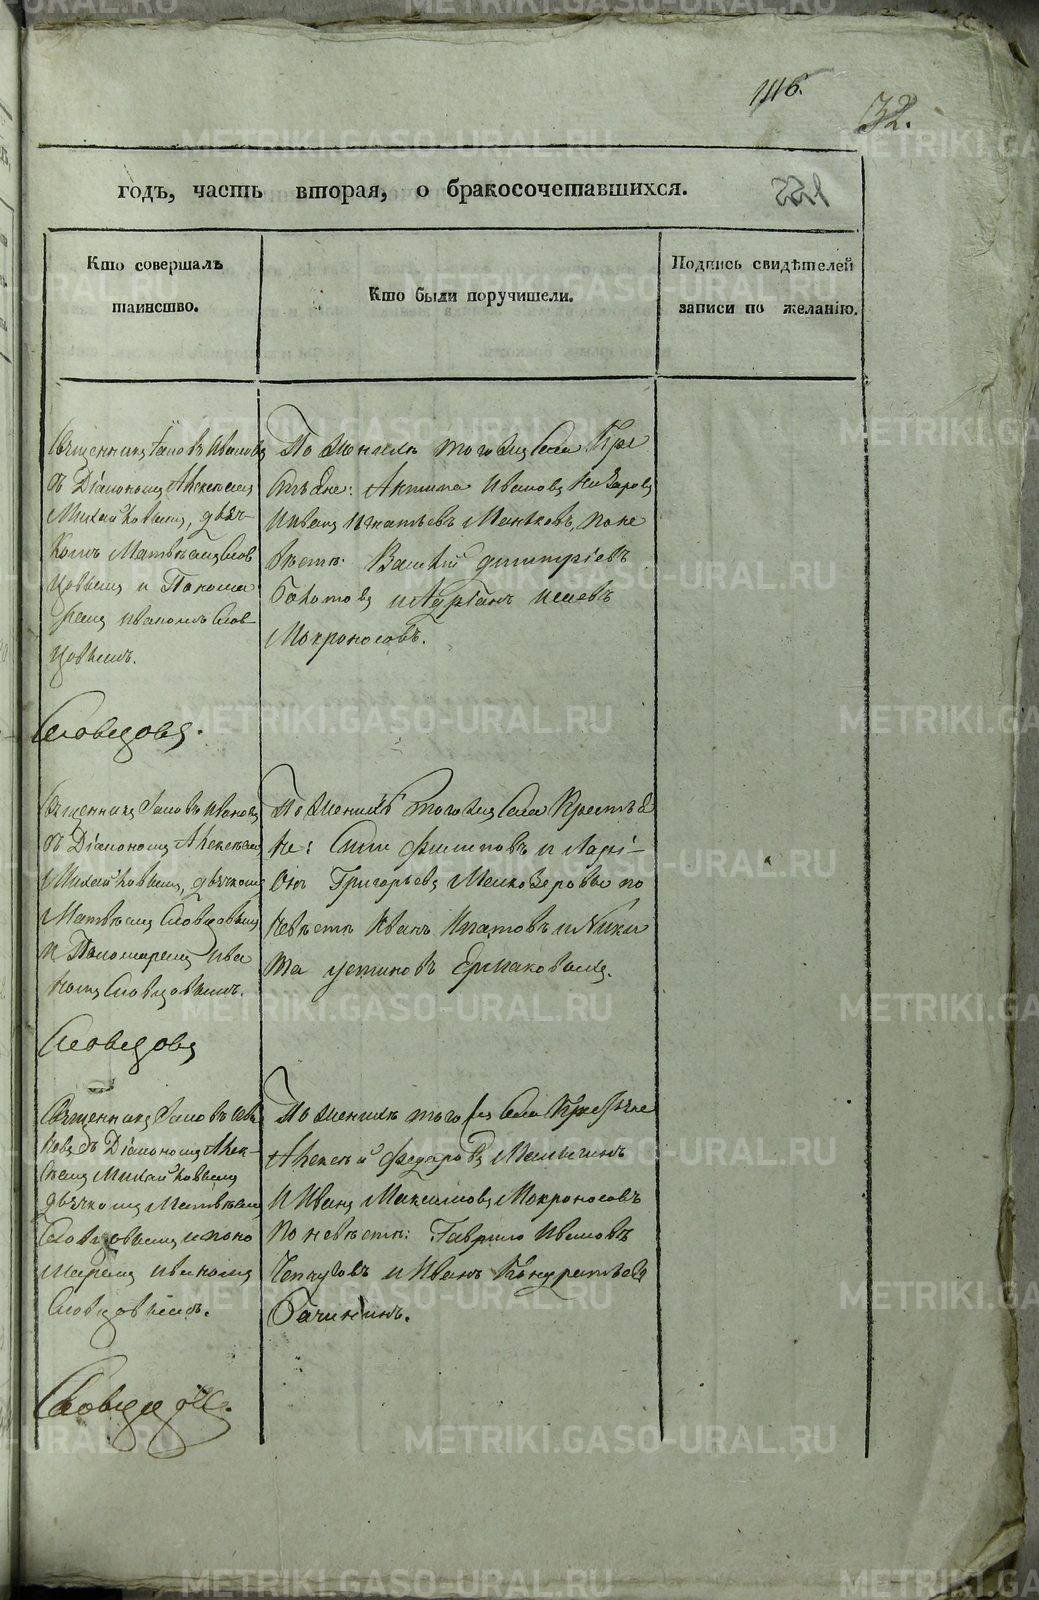 116.
32.
годъ, часть вторая, о бракосочетавшихся.
Кто совершалъ
таинство.
Кто были поручители.
Подпись свидѣтелей
записи по желанію.
Священникъ Іаковъ Ивановъ
съ Діакономъ Алексѣемъ
Михайловымъ, дьяч-
комъ Матвѣемъ Слов
цовымъ и Понома
ремъ Иваномъ Слов-
цовымъ.
Словцовъ.
По женихѣ тогожъ Села Кре
стьяне: Иванов Назаровъ
Иванъ Игнатьевъ по не
вѣстѣ: Василій Дмитріевъ
и
Мокроносовъ.
Священникъ Іаковъ Ивановъ
съ Діакономъ Алексѣемъ
Михайловымъ, дьячкомъ
Матвѣемъ Словцовымъ
и Пономаремъ Ива
номъ Словцовымъ.
Словцовъ
По женихѣ тогожъ Села Крестья
не: Филиповъ и Ларі-
онъ Григорьевъ Мелкозеровы по
невѣстѣ Иванъ Ипатовъ и Ники
та Устиновъ Ермаковыхъ.
Священникъ Іаковъ Ива
новъ съ Діакономъ Алек-
сѣемъ Михайловымъ
дьячкомъ Матвѣемъ
Словцовымъ и поно
маремъ Иваномъ
Словцовымъ.
Словцовъ.
По женихѣ того жъ Села Крестьяне
Алексѣй Федоровъ
и Иванъ Максимовъ Мокроносовъ
по невѣстѣ: Гаврило Ивановъ
Чепчуговъ и Иванъ Кондратьевъ
Бачининъ.
METRIKI.GASO-URAL.RU